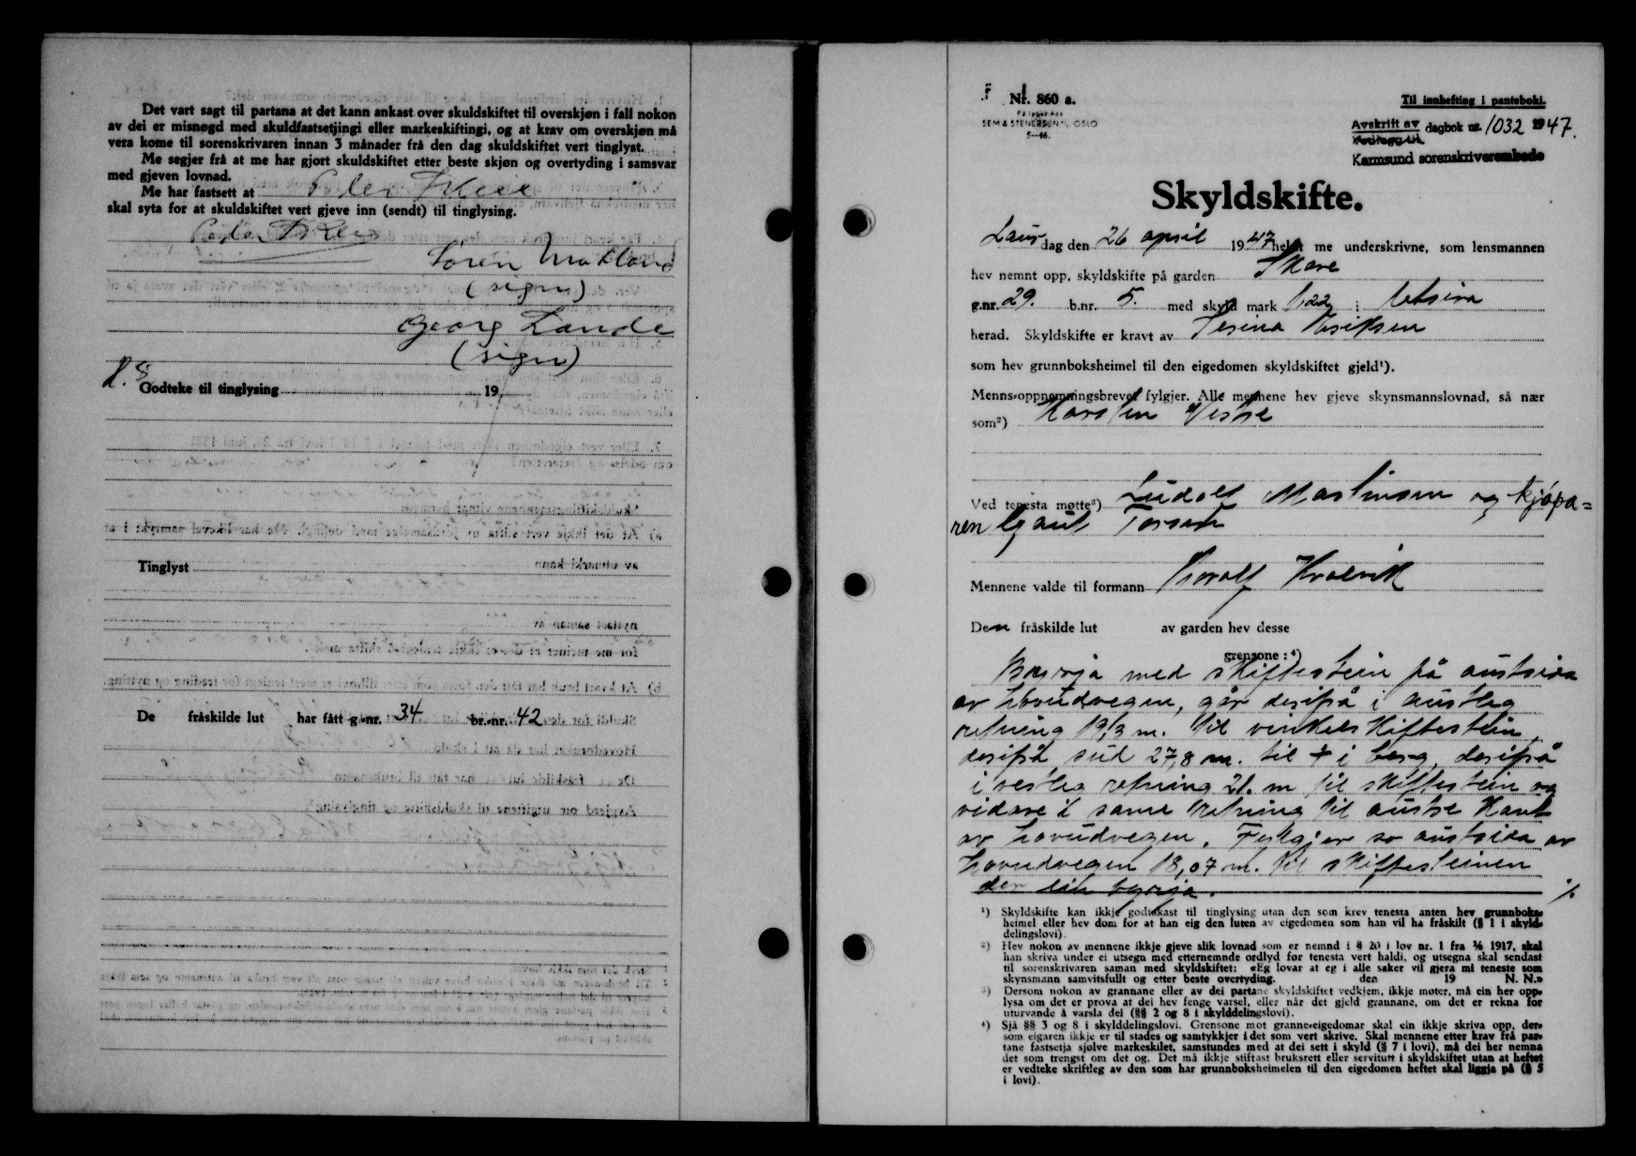 Det vart sagt til partana at det kann ankast over skuldskiftet til overskjøn i fall nokon
av dei er misnøgd med skuldfastsetjingi eller markeskiftingi, og at krav om overskjøn må
vera kome til sorenskrivaren innan 3 månader frå den dag skuldskiftet vert tinglyst.
Me segjer frå at me har gjort skuldskiftet etter beste skjøn og overtyding i samsvar
med gjeven lovnad.
Me har fastsett at Peder
skal syta for at skuldskiftet vert gjeve inn (sendt) til tinglysing.
Søren
(sign)
Georg Lande
(sign)
Godteke til tinglysing 19
Tinglyst
De fråskilde lut har fått g.nr. 34 br.-nr. 42
Nr. 860 a.
På lager hos
SEM & STENERSEN A/S, OSLO
5-46.
Til innhefting i panteboki.
Avskrift av dagbok nr. 1032 1947.
Vedlegg til
Karmsund sorenskriverembede
Skyldskifte.
Laurdag den 26 april 1947 heldt me underskrivne, som lensmannen
hev nemnt opp, skyldskifte på garden Skare
g.nr. 29. b.nr. 5. med skyld mark 1,22 i Utsira
herad. Skyldskifte er kravt av
som hev grunnboksheimel til den eigedomen skyldskiftet gjeld¹).
Menns-oppnemningsbrevet fylgjer. Alle mennene hev gjeve skynsmannslovnad, så nær
som²) Karsten
Ved tenesta møtte³) Ludolf Martinsen og kjøpa=
ren Gaut
Mennene valde til formann Torolf Kvalvik
Den fråskilde lut av garden hev desse
grensone :⁴)
Byrja med skiftestein på austsida
av hovudvegen, går derifrå i austleg
retning 19,3 m. til vinkelskiftestein,
derifrå sud 27,8 m. til + i berg, derifrå
i vestleg retning 21. m til skiftestein og
vidare i same retning til austre kant
av hovudvegen. Fylgjer so austsida av
hovudvegen 18,07 m. til skiftesteinen
der ein byrja. ./.
¹) Skyldskifte kan ikkje godtakast til tinglysing utan den som krev tenesta anten hev grunnboks-
heimel eller hev dom for at han eig den luten av eigedomen som han vil ha fråskilt (§ 1 i skyld-
delingslovi).
²) Hev nokon av mennene ikkje gjeve slik lovnad som er nemnd i § 20 i lov nr. 1 fra ¹/₆ 1917, skal
han skriva under ei utsegn med etternemnde ordlyd før tenesta vert haldi, og utsegna skal sendast
til sorenskrivaren saman med skyldskiftet: «Eg lovar at eg i alle saker vil gjera mi teneste som
skynsmann samvitsfullt og etter beste overtyding. den 19 N. N.»
³) Dersom nokon av grannane eller av dei partane skyldskiftet vedkjem, ikkje møter, må ein her opp-
lysa om det er prova at dei hev fenge varsel, eller når det gjeld grannane, om det er rekna for
uturvande å varsla dei (§§ 2 og 8 i skylddelingslovi).
⁴) Sjå §§ 3 og 8 i skylddelingslovi. Grensone mot granne-eigedomar skal ein ikkje skriva opp, der-
som eigaren ikkje er til stades og samtykkjer i det som vert skrive. Skal mennene etter krav frå par-
tane fastsetja sjølve markeskilet, samstundes med at dei sett i skyld (§ 7 i lovi), må dei her nemna
det som trengst om det og. Det må ikkje stiftast bruksrett eller servitutt i skyldskiftet utan at heftet
er vedteke skriftleg av den som har grunnboksheimelen til den eigedomen heftet skal liggja på (§ 5
i lovi).